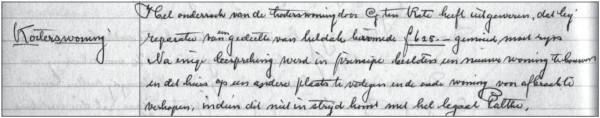 Het onderzoek van de kosterswoning door G ten Kate heeft uitgewezen, dat bij
Kosterswoning
reparatie van gedeelte van het dak hiermede ƒ 625.- gemoeid moet zijn
Na enige bespreking werd in principe besloten een nieuwe woning te bouwen
en dit huis op een andere plaats te zetten en de oude woning voor afbraak te
verkopen, indien dit niet in strijd komt met het legaat Palthe.